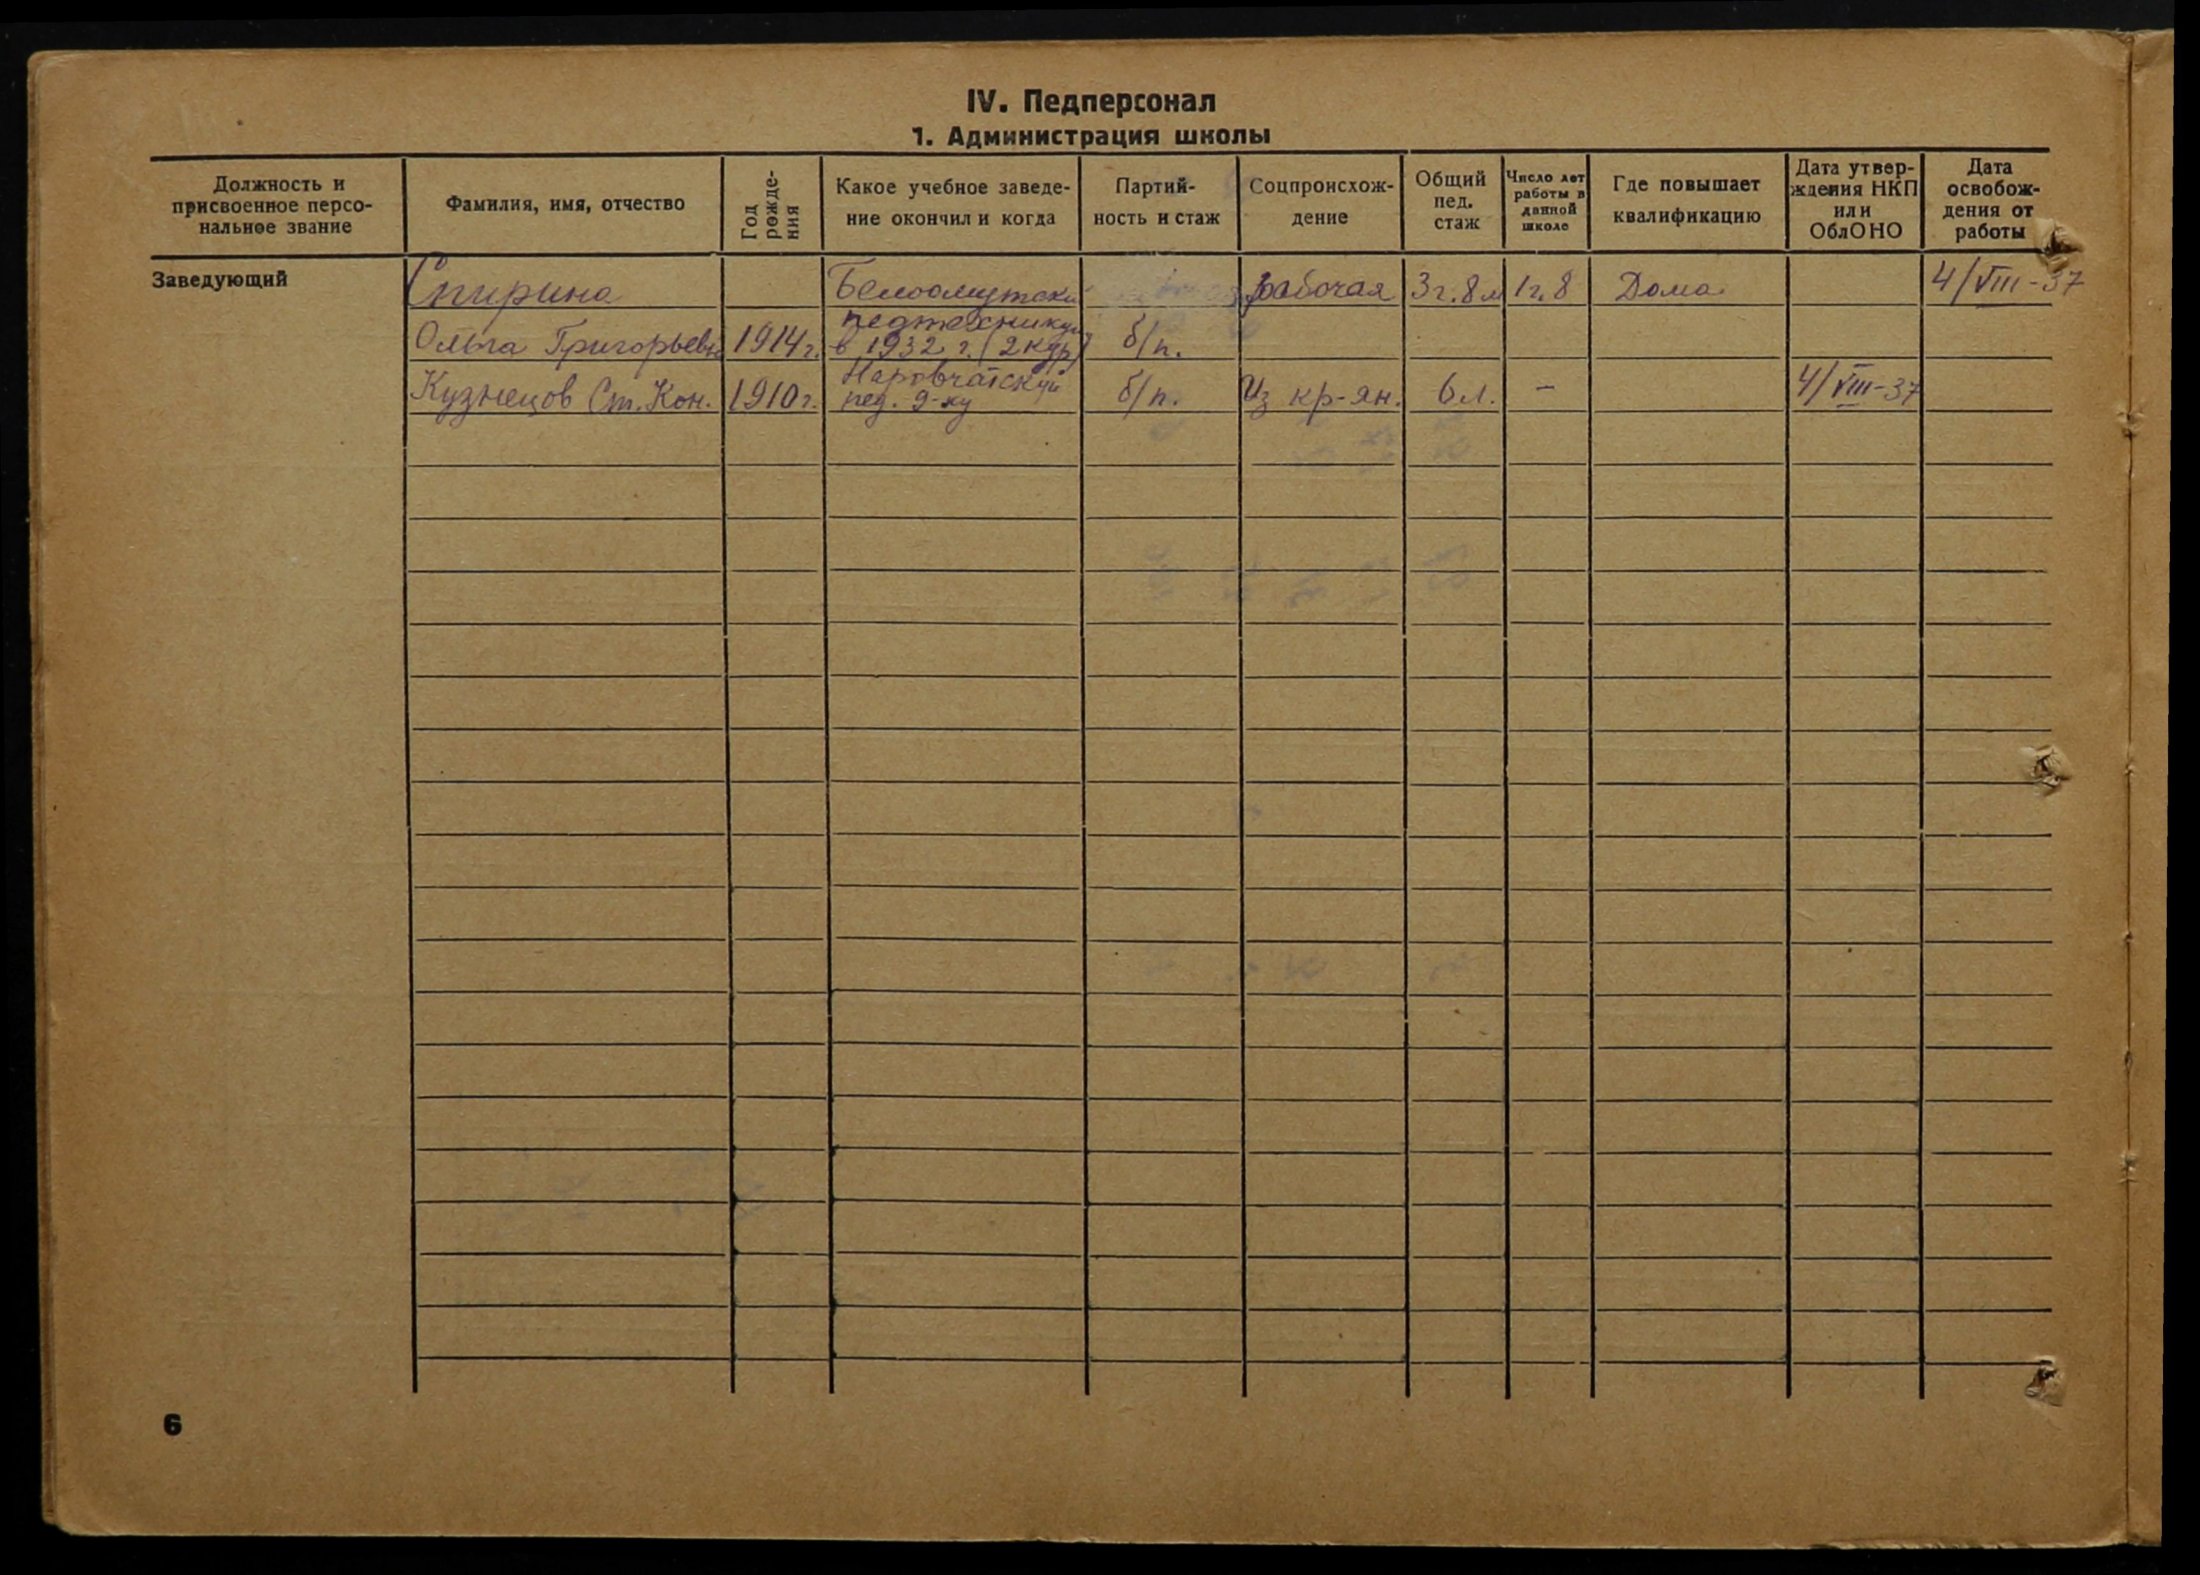 IV. Педперсонал
1. Администрация школы
Должность и
присвоенное персо-
нальное звание
Фамилия, имя, отчество
Год
рожде-
ния
Какое учебное заведе-
ние окончил и когда
Партий-
ность и стаж
Соцпроисхож-
дение
Общий
пед.
стаж
Число лет
работы в
данной
школе
Где повышает
квалификацию
Дата утвер-
ждения НКП
или
ОблОНО
Дата
освобож-
дения от
работы
Заведующий
Спирина
Белоомутский
рабочая
3 г. 8 м
1 г. 8
Дома
4/VIII-37
педтехникум
Ольга Григорьевн
1914 г.
в 1932 г. (2 кур)
б/п.
Кузнецов Ст. Кон.
1910 г.
Наровчатскую
пед. 9-ку
б/п.
Из кр-ян.
6 л.
-
4/VIII-37
6